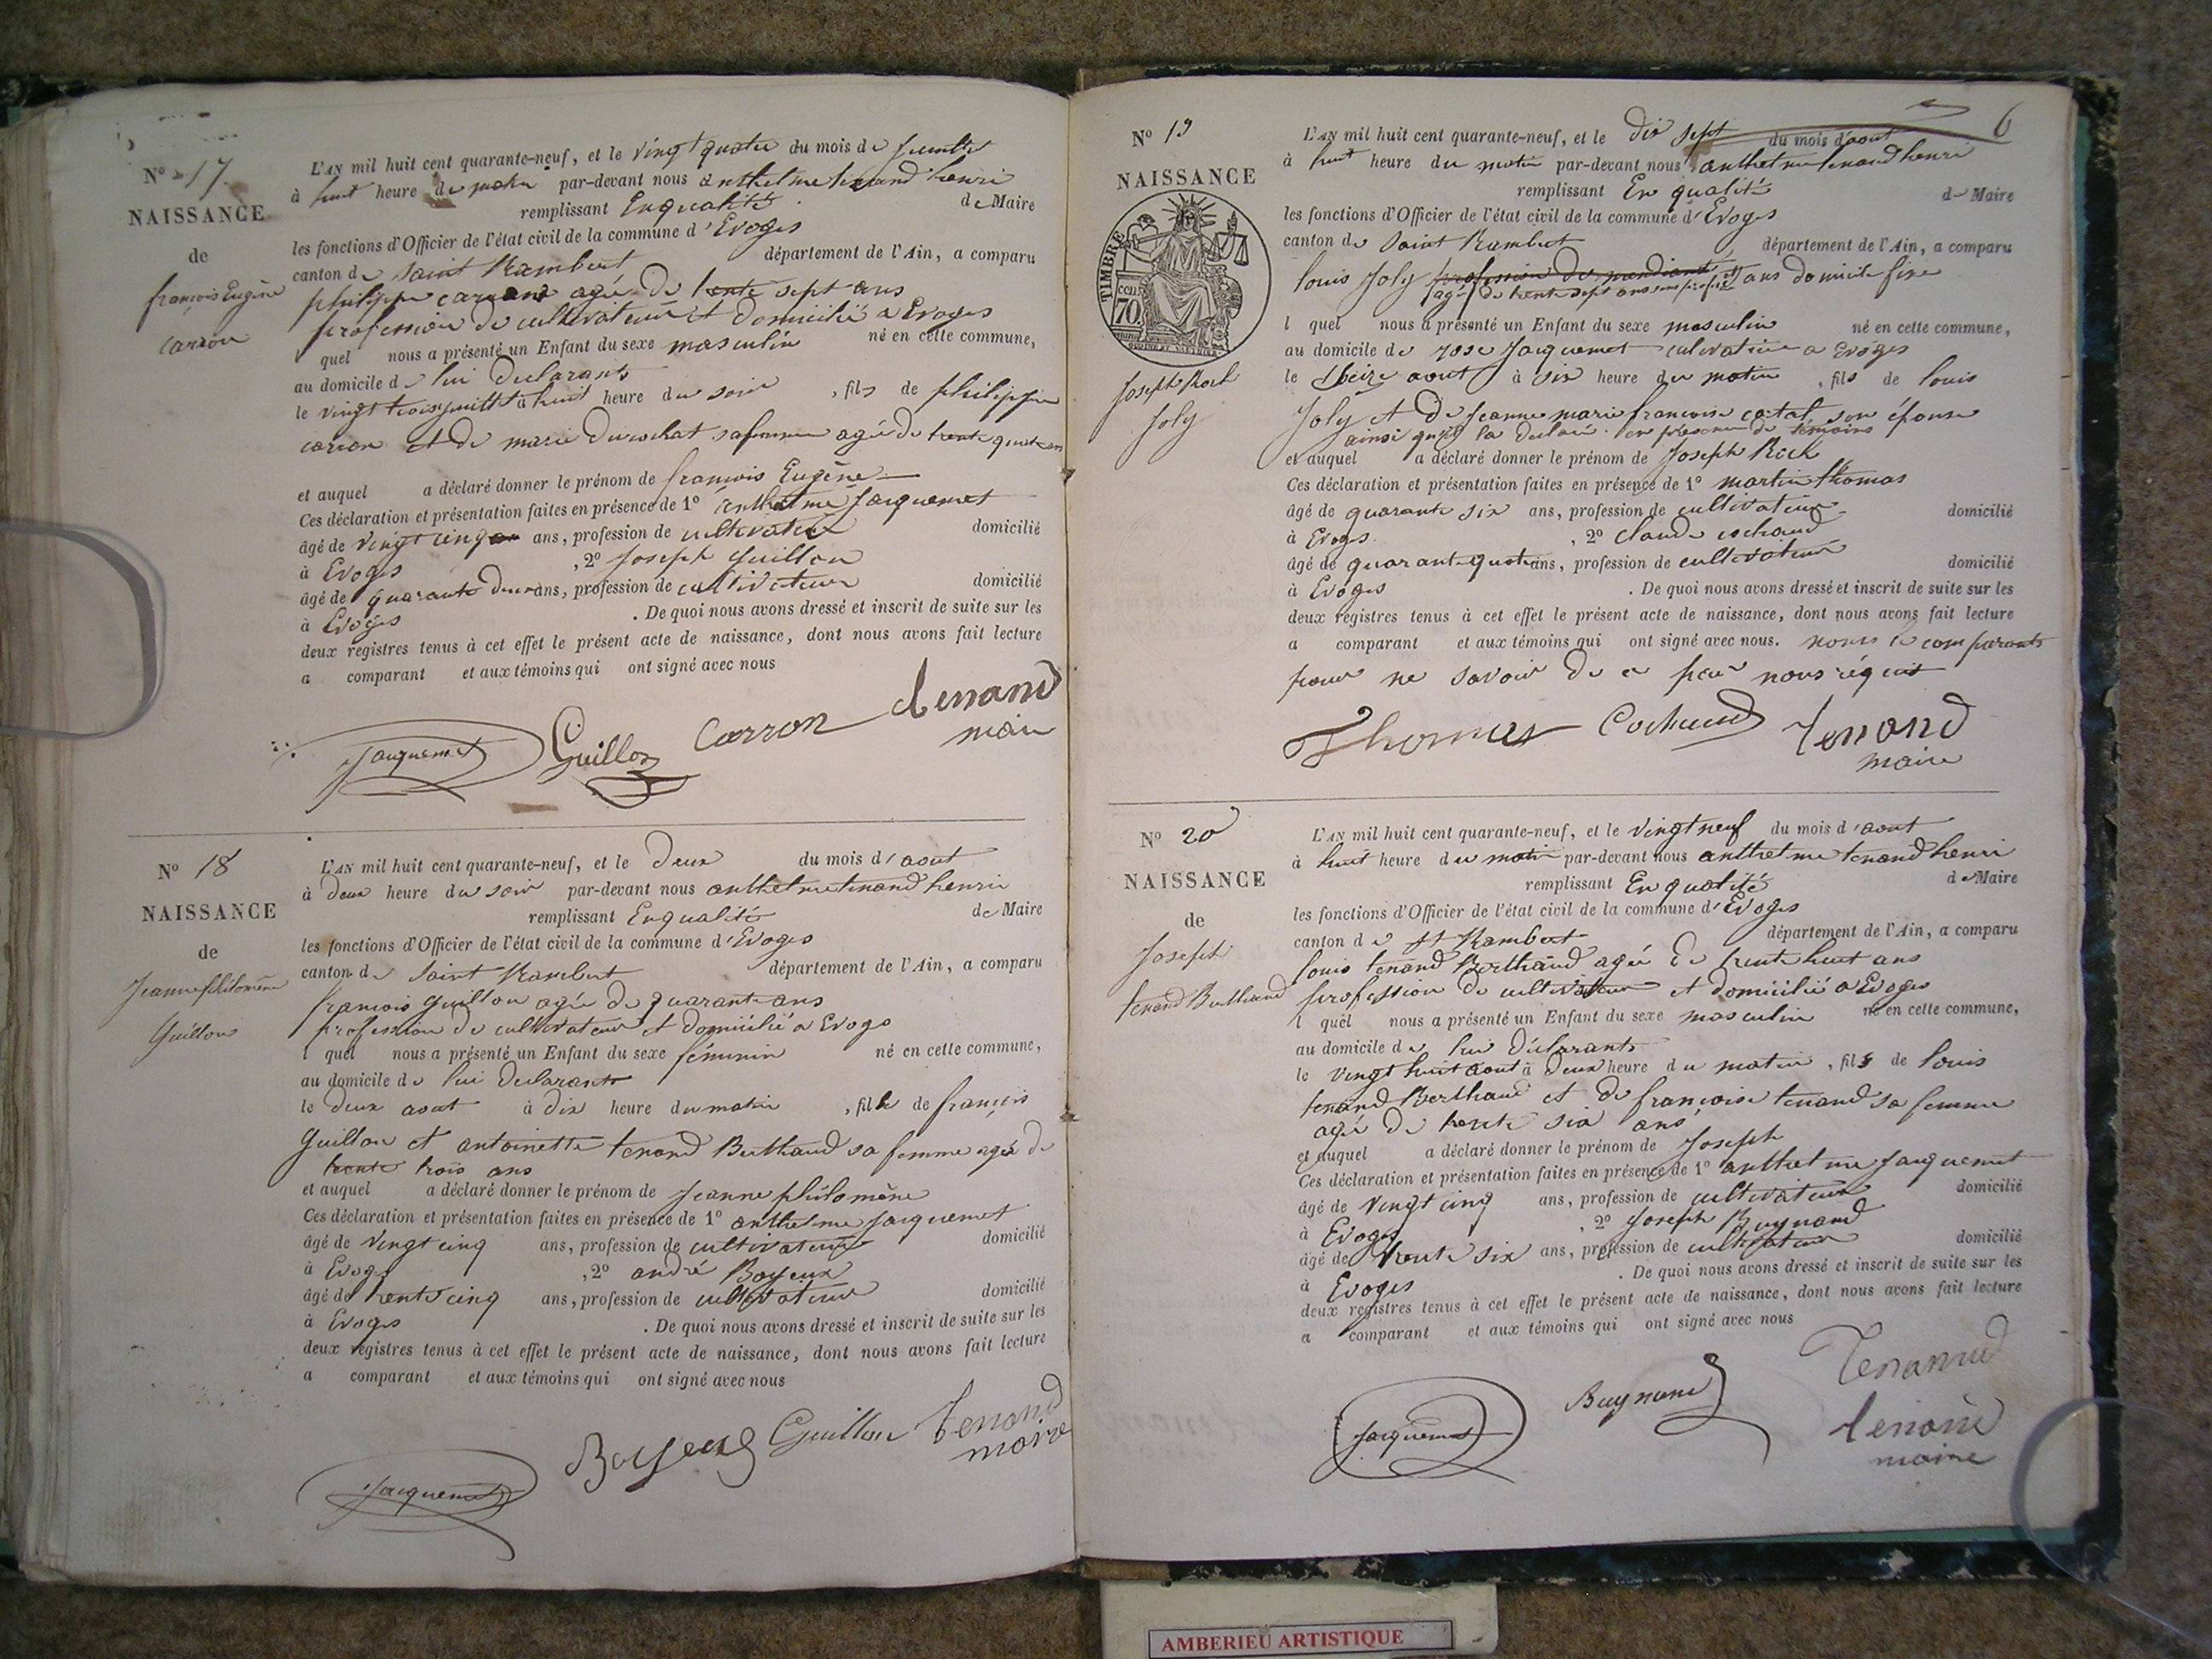 N° 17.
NAISSANCE
de
françois Eugène
Carron
L'AN mil huit cent quarante-neuf, et le vingt quatre du mois de juillet
à huit heure du matin par-devant nous anthelme tenand henri
remplissant En qualité de Maire
les fonctions d'Officier de l'état civil de la commune d'Evoges
canton de Saint Rambert département de l'Ain, a comparu
philippe carron agé de trente sept ans
profession de cultivateur et domicilié a Evoges
l quel nous a présenté un Enfant du sexe masculin né en cette commune,
au domicile de lui declarant
le vingt trois juillet à huit heure du soir, fils de philippe
carron et de marie durochat sa femme agée de trente quatre ans
et auquel a déclaré donner le prénom de françois Eugène
Ces déclaration et présentation faites en présence de 1° anthelme Jacquemet
âgé de vingt cinq ans, profession de cultivateur domicilié
à Evoges, 2° Joseph Guillon
âgé de quarante deux ans, profession de cultivateur domicilié
à Evoges. De quoi nous avons dressé et inscrit de suite sur les
deux registres tenus à cet effet le présent acte de naissance, dont nous avons fait lecture
a comparant et aux témoins qui ont signé avec nous
Jacquemet Guillon Carron tenand
maire
N° 18
NAISSANCE
de
Jeanne philomène
Guillon
L'AN mil huit cent quarante-neuf, et le deux du mois d'aout
à deux heure du soir par-devant nous anthelme tenand henri
remplissant En qualité de Maire
les fonctions d'Officier de l'état civil de la commune d'Evoges
canton de Saint Rambert département de l'Ain, a comparu
françois Guillon agée de quarante ans
profession de cultivateur et domicilié a Evoges
l quel nous a présenté un Enfant du sexe féminin né en cette commune,
au domicile de lui declarant
le deux aout à dix heure du matin, fille de françois
Guillon et antoinette tenand Berthaud sa femme agée de
trente trois ans
et auquel a déclaré donner le prénom de Jeanne philomène
Ces déclaration et présentation faites en présence de 1° anthelme Jacquemet
âgé de vingt cinq ans, profession de cultivateur domicilié
à Evoges, 2° andré Boyeux
âgé de trente cinq ans, profession de cultivateur domicilié
à Evoges. De quoi nous avons dressé et inscrit de suite sur les
deux registres tenus à cet effet le présent acte de naissance, dont nous avons fait lecture
a comparant et aux témoins qui ont signé avec nous
Jacquemet Boyeux Guillon Tenand
maire
6
N° 19
NAISSANCE
TIMBRE
cen.
70.
Joseph Roch
Joly
L'AN mil huit cent quarante-neuf, et le dix sept du mois d'aout
à huit heure du matin par-devant nous anthelme tenand henri
remplissant En qualité de Maire
les fonctions d'Officier de l'état civil de la commune d'Evoges
canton de Saint Rambert département de l'Ain, a comparu
louis Joly profession de mendiant sans domicile fixe
agé de trente sept ans sans profession
l quel nous a présenté un Enfant du sexe masculin né en cette commune,
au domicile de rose Jacquemet cultivatrice a Evoges
le seize aout à six heure du matin, fils de louis
Joly et de Jeanne marie françoise catal son épouse
ainsi qu'il la declaré en présence de témoins
et auquel a déclaré donner le prénom de Joseph Roch
Ces déclaration et présentation faites en présence de 1° martin thomas
âgé de quarante six ans, profession de cultivateur domicilié
à Evoges, 2° claude cochaud
âgé de quarante quatre ans, profession de cultivateur domicilié
à Evoges. De quoi nous avons dressé et inscrit de suite sur les
deux registres tenus à cet effet le présent acte de naissance, dont nous avons fait lecture
a comparant et aux témoins qui ont signé avec nous. non le comparant
pour ne savoir de ce par nous réquis
Thomas Cochaud Tenand
maire
N° 20
NAISSANCE
de
Joseph
tenand Berthaud
L'AN mil huit cent quarante-neuf, et le vingt neuf du mois d'aout
à huit heure du matin par-devant nous anthelme tenand henri
remplissant En qualité de Maire
les fonctions d'Officier de l'état civil de la commune d'Evoges
canton de St Rambert département de l'Ain, a comparu
louis tenand Berthaud agée de trente huit ans
profession de cultivateur et domicilié a Evoges
l quel nous a présenté un Enfant du sexe masculin né en cette commune,
au domicile de lui déclarant
le vingt huit aout à deux heure du matin, fils de louis
tenand Berthaud et de françoise tenand sa femme
agée de trente six ans
et auquel a déclaré donner le prénom de Joseph
Ces déclaration et présentation faites en présence de 1° anthelme Jacquemet
âgé de vingt cinq ans, profession de cultivateur domicilié
à Evoges, 2° Joseph Buynand
âgé de trente six ans, profession de cultivateur domicilié
à Evoges. De quoi nous avons dressé et inscrit de suite sur les
deux registres tenus à cet effet le présent acte de naissance, dont nous avons fait lecture
a comparant et aux témoins qui ont signé avec nous
Tenand
Jacquemet Buynand tenand
maire
AMBERIEU ARTISTIQUE